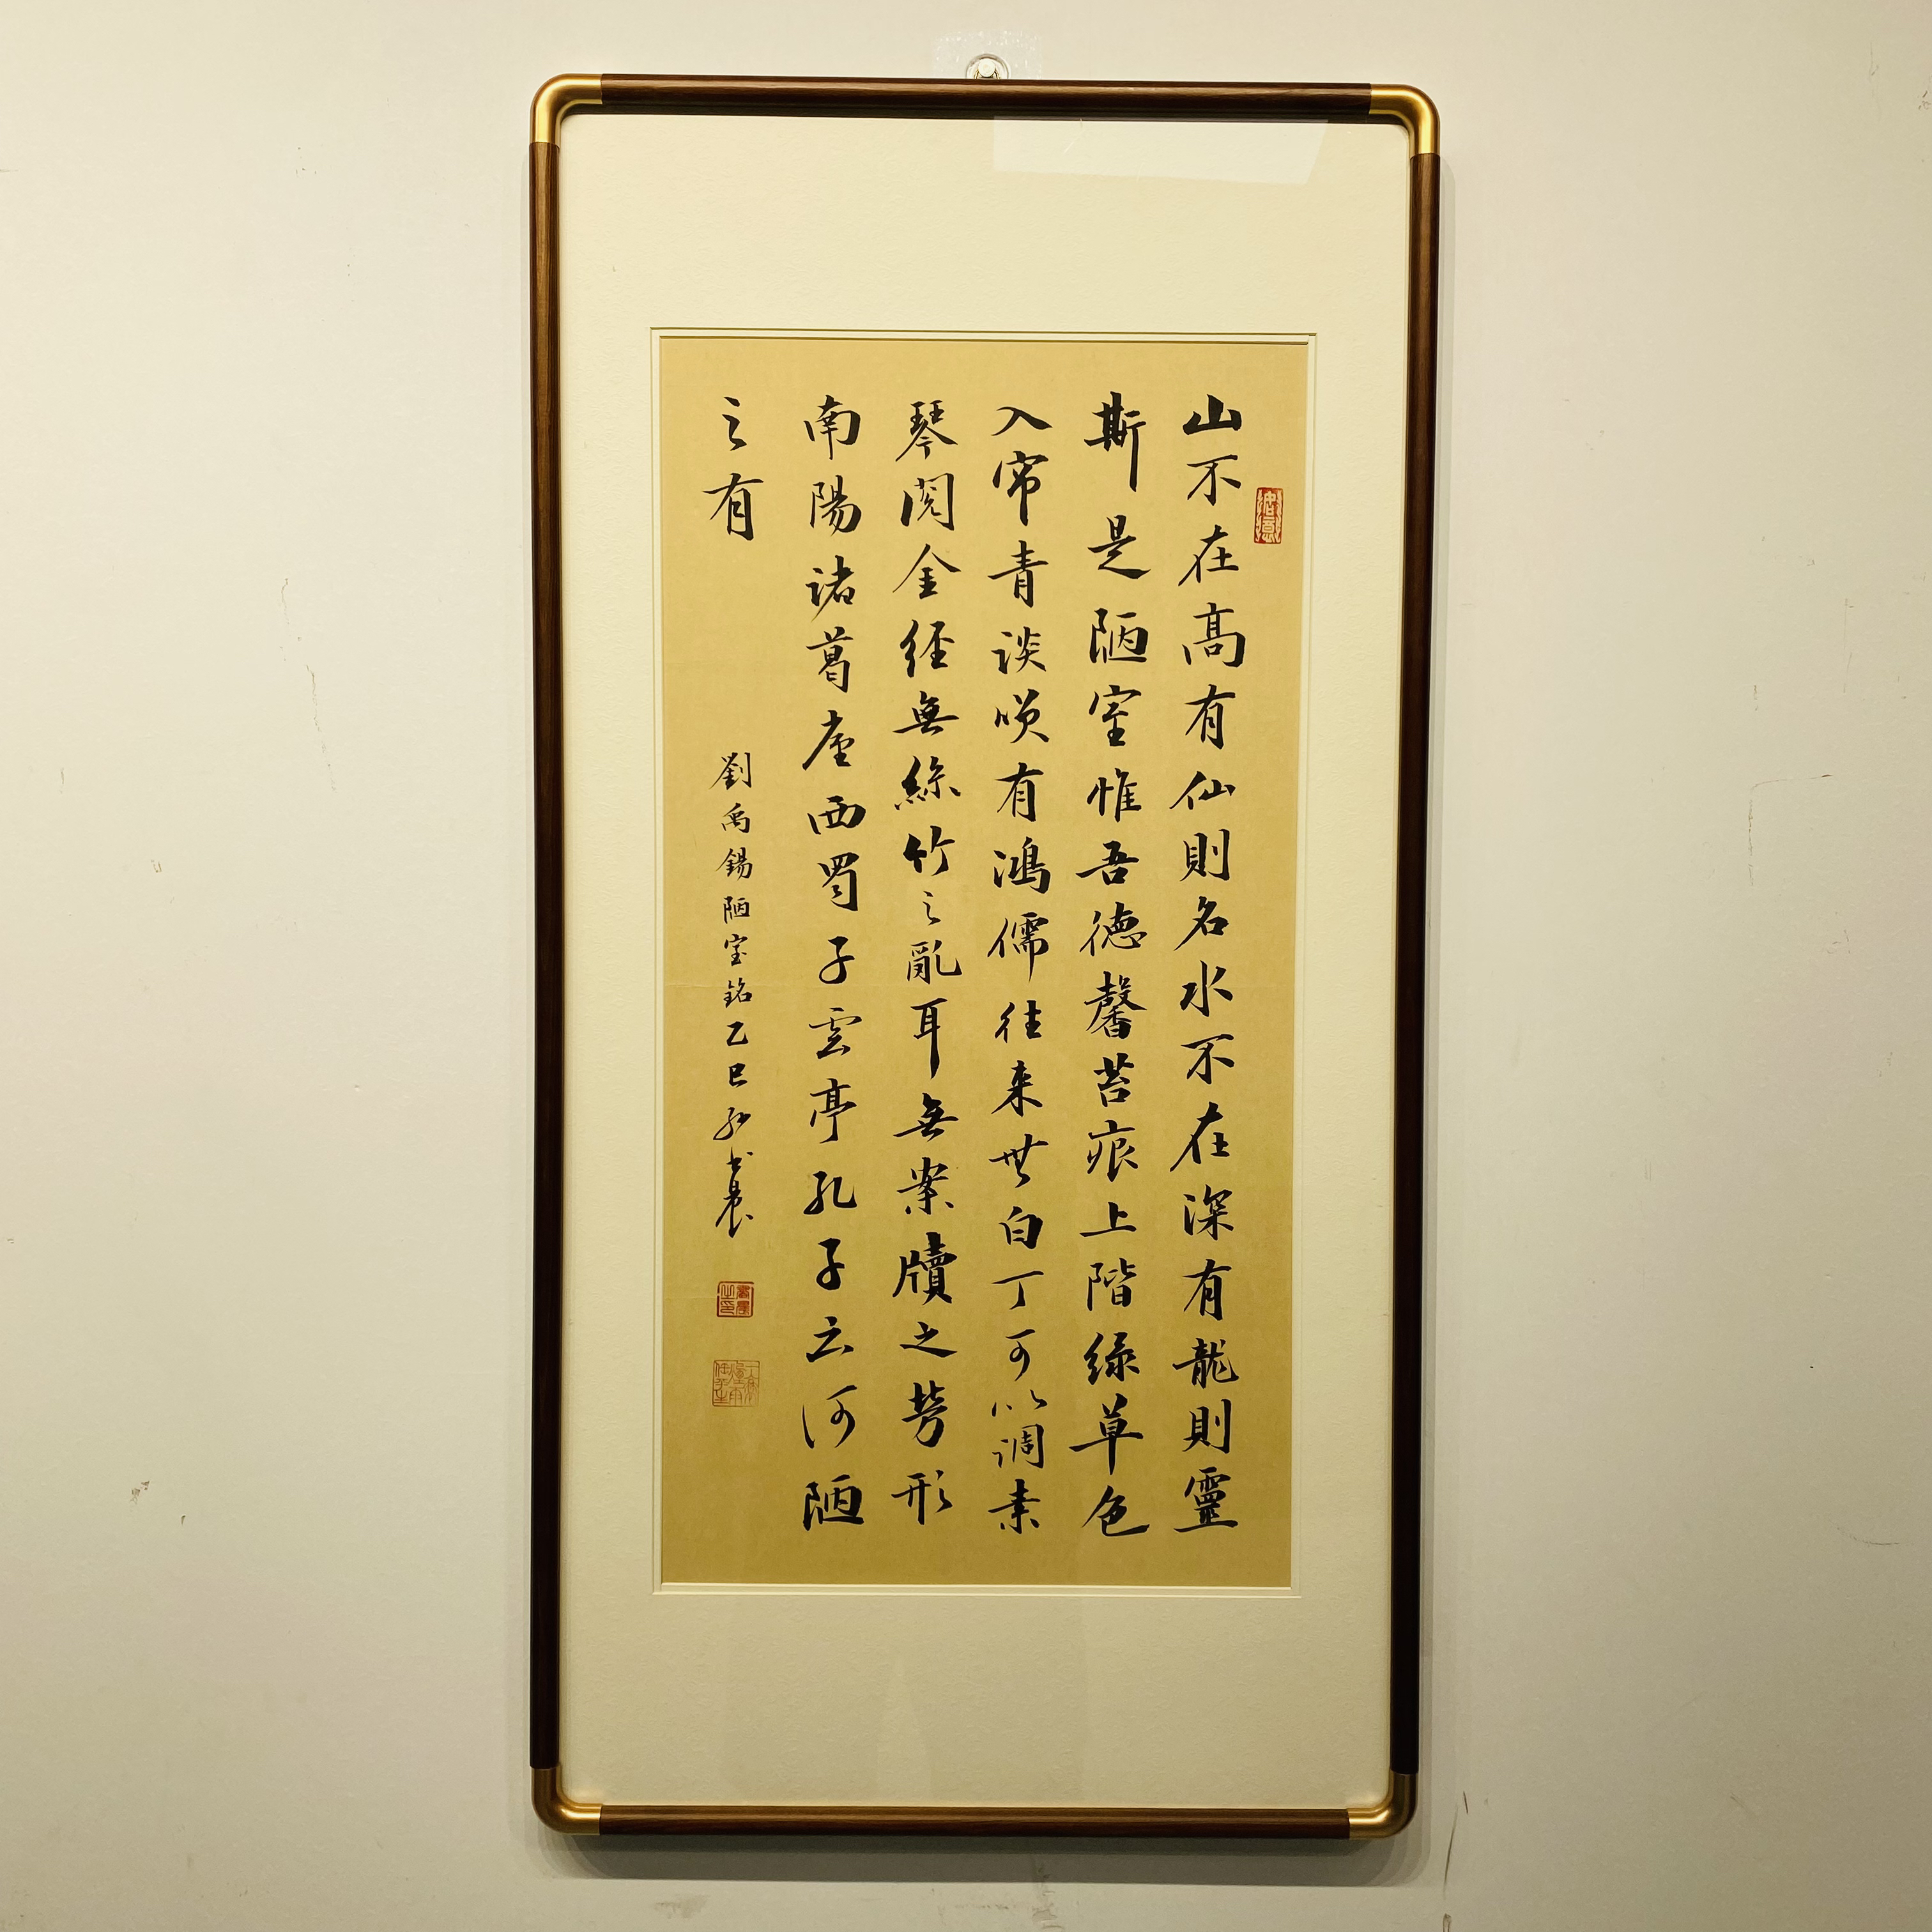 山不在高有仙則名水不在深有龍則靈
斯是陋室惟吾德馨苔痕上階緑草色
入帘青談咲有鴻儒往来無白丁可以調素
琴閲金経無絲竹之亂耳無案牘之勞形
南陽諸葛廬西蜀子雲亭孔子云何陋
之有
劉禹錫陋室銘乙巳書晨